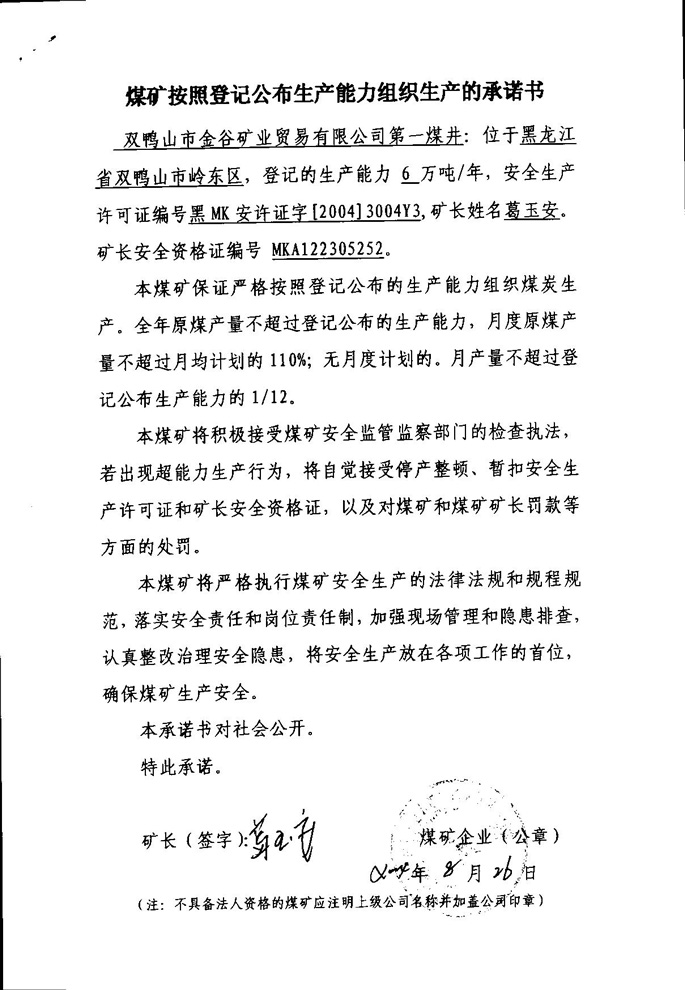 煤矿按照登记公布生产能力组织生产的承诺书
双鸭山市金谷矿业贸易有限公司第一煤井：位于黑龙江
省双鸭山市岭东区，登记的生产能力 6 万吨/年，安全生产
许可证编号黑 MK 安许证字[2004]3004Y3,矿长姓名葛玉安。
矿长安全资格证编号 MKA122305252。
本煤矿保证严格按照登记公布的生产能力组织煤炭生
产。全年原煤产量不超过登记公布的生产能力，月度原煤产
量不超过月均计划的 110%；无月度计划的。月产量不超过登
记公布生产能力的 1/12。
本煤矿将积极接受煤矿安全监管监察部门的检查执法，
若出现超能力生产行为，将自觉接受停产整顿、暂扣安全生
产许可证和矿长安全资格证，以及对煤矿和煤矿矿长罚款等
方面的处罚。
本煤矿将严格执行煤矿安全生产的法律法规和规程规
范，落实安全责任和岗位责任制，加强现场管理和隐患排查，
认真整改治理安全隐患，将安全生产放在各项工作的首位，
确保煤矿生产安全。
本承诺书对社会公开。
特此承诺。
矿长（签字）：葛玉安
煤矿企业（公章）
年 8 月 26 日
（注：不具备法人资格的煤矿应注明上级公司名称并加盖公司印章）